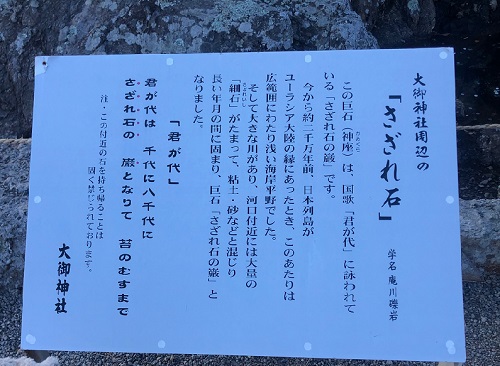 大御神社周辺の
「さざれ石」
学名庵川礫岩
この巨石（神座）は、国歌「君が代」に詠われて
いる「さざれ石の巌」です。
今から約二千万年前、日本列島が
ユーラシア大陸の縁にあったとき、このあたりは
広範囲にわたり浅い海岸平野でした。
そして大きな川があり、河口付近には大量の
「細石」がたまって、粘土・砂などと混じり
長い年月の間に固まり、巨石「さざれ石の巌」と
なりました。
「君が代」
君が代は 千代に八千代に
さざれ石の 巌となりて 苔のむすまで
注・この付近の石を持ち帰ることは
固く禁じられております。
大御神社